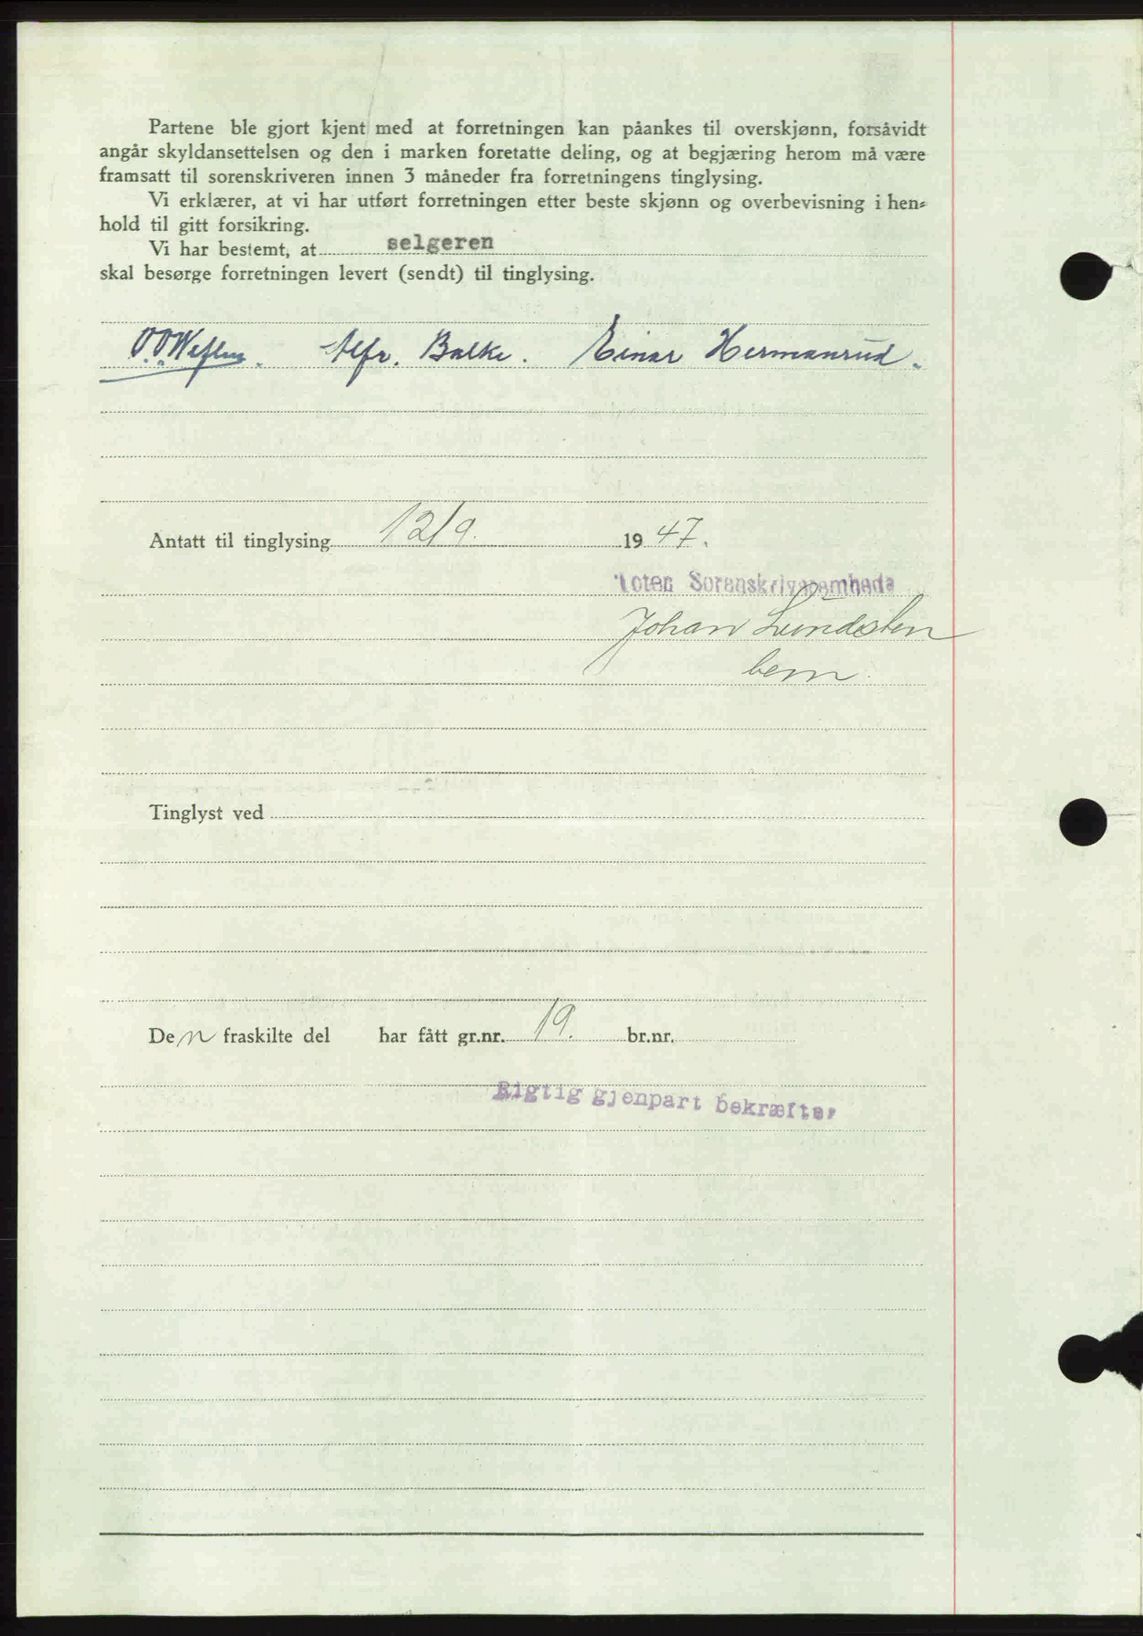 Partene ble gjort kjent med at forretningen kan påankes til overskjønn, forsåvidt
angår skyldansettelsen og den i marken foretatte deling, og at begjæring herom må være
framsatt til sorenskriveren innen 3 måneder fra forretningens tinglysing.
Vi erklærer, at vi har utført forretningen etter beste skjønn og overbevisning i hen-
hold til gitt forsikring.
Vi har bestemt, at selgeren
skal besørge forretningen levert (sendt) til tinglysing.
Alfr. Balke. Einar Hermanrud.
Antatt til tinglysing 12/9. 1947.
Toten Sorenskriverembede
Johan Lundsten
bem.
Tinglyst ved
Den fraskilte del har fått gr.nr. 19. br.nr.
Rigtig gjenpart bekræftes